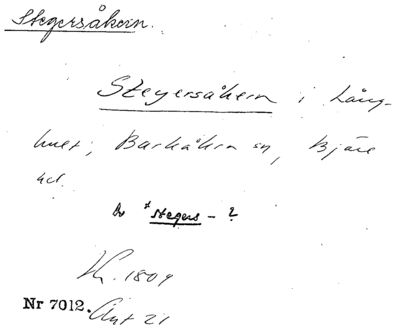 Stegersåkern.
Stegersåkern i Lång-
huet, Barkåkra sn, Bjäre
hd.
Av *stegers- ?
Nr 7012.